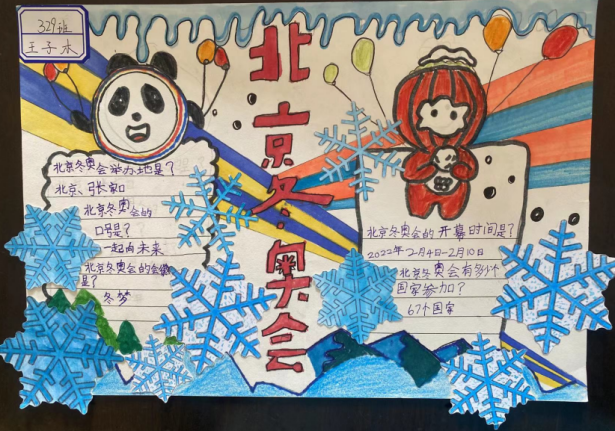 329班
王子木
北京冬奥会
北京冬奥会举办地是?
北京、张家口
北京冬奥会的
口号是?
一起向未来
北京冬奥会的会徽
是?
冬梦
北京冬奥会的开幕时间是?
2022年2月4日-2月10日
北京冬奥会有多少个
国家参加?
67个国家